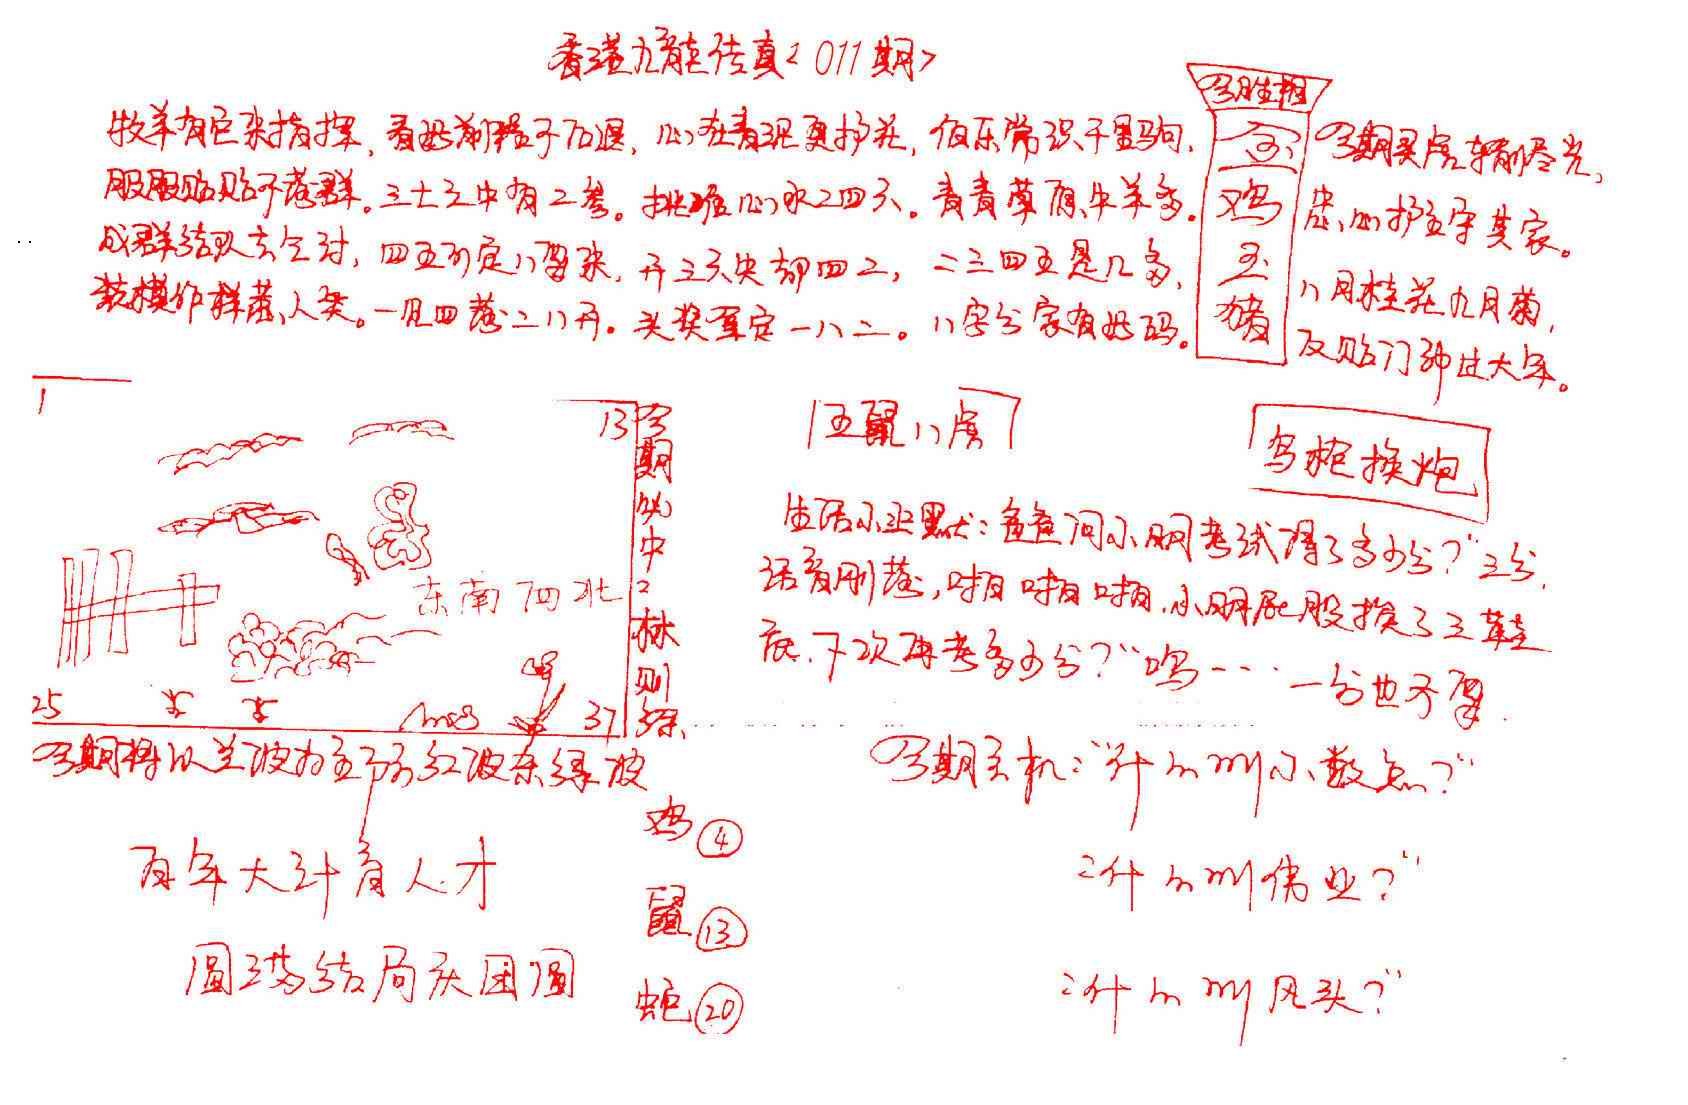 香港九龍传真<011期>
牧羊有它来指挥，看此前程予后退，心在青泥更护花，伯乐常识千里驹，
服服贴贴不落群。三十之中有二参。挑难心水二四六。青青草原牛羊多。
成群结队去乞讨，四五不定八要来，开三六央却四二，二三四五是几多，
装模作样落人类。一见四落二八开。头奖单定一八二。八字分家有此码。
今期生相
金
鸡
玉
猪
今期买虎转前尽光，
忠心护主守其家。
八月桂花九月菊，
反贴门神过大年。
1
13
25
37
东南西北
今期必中：林则徐
五鼠八虎
鸟枪换炮
生活小幽默：爸爸问小明考试得了多少分？"三分，
话音刚落，啪啪啪，小明屁股挨了三鞋
底，下次再考多少分？"呜……一分也不要
今期将以兰波为主
红波 绿波
百年大计育人才
圆满结局庆团圆
鸡④
鼠⑬
蛇⑳
今期玄机："什么叫小数点？"
"什么叫伟业？"
"什么叫风头？"